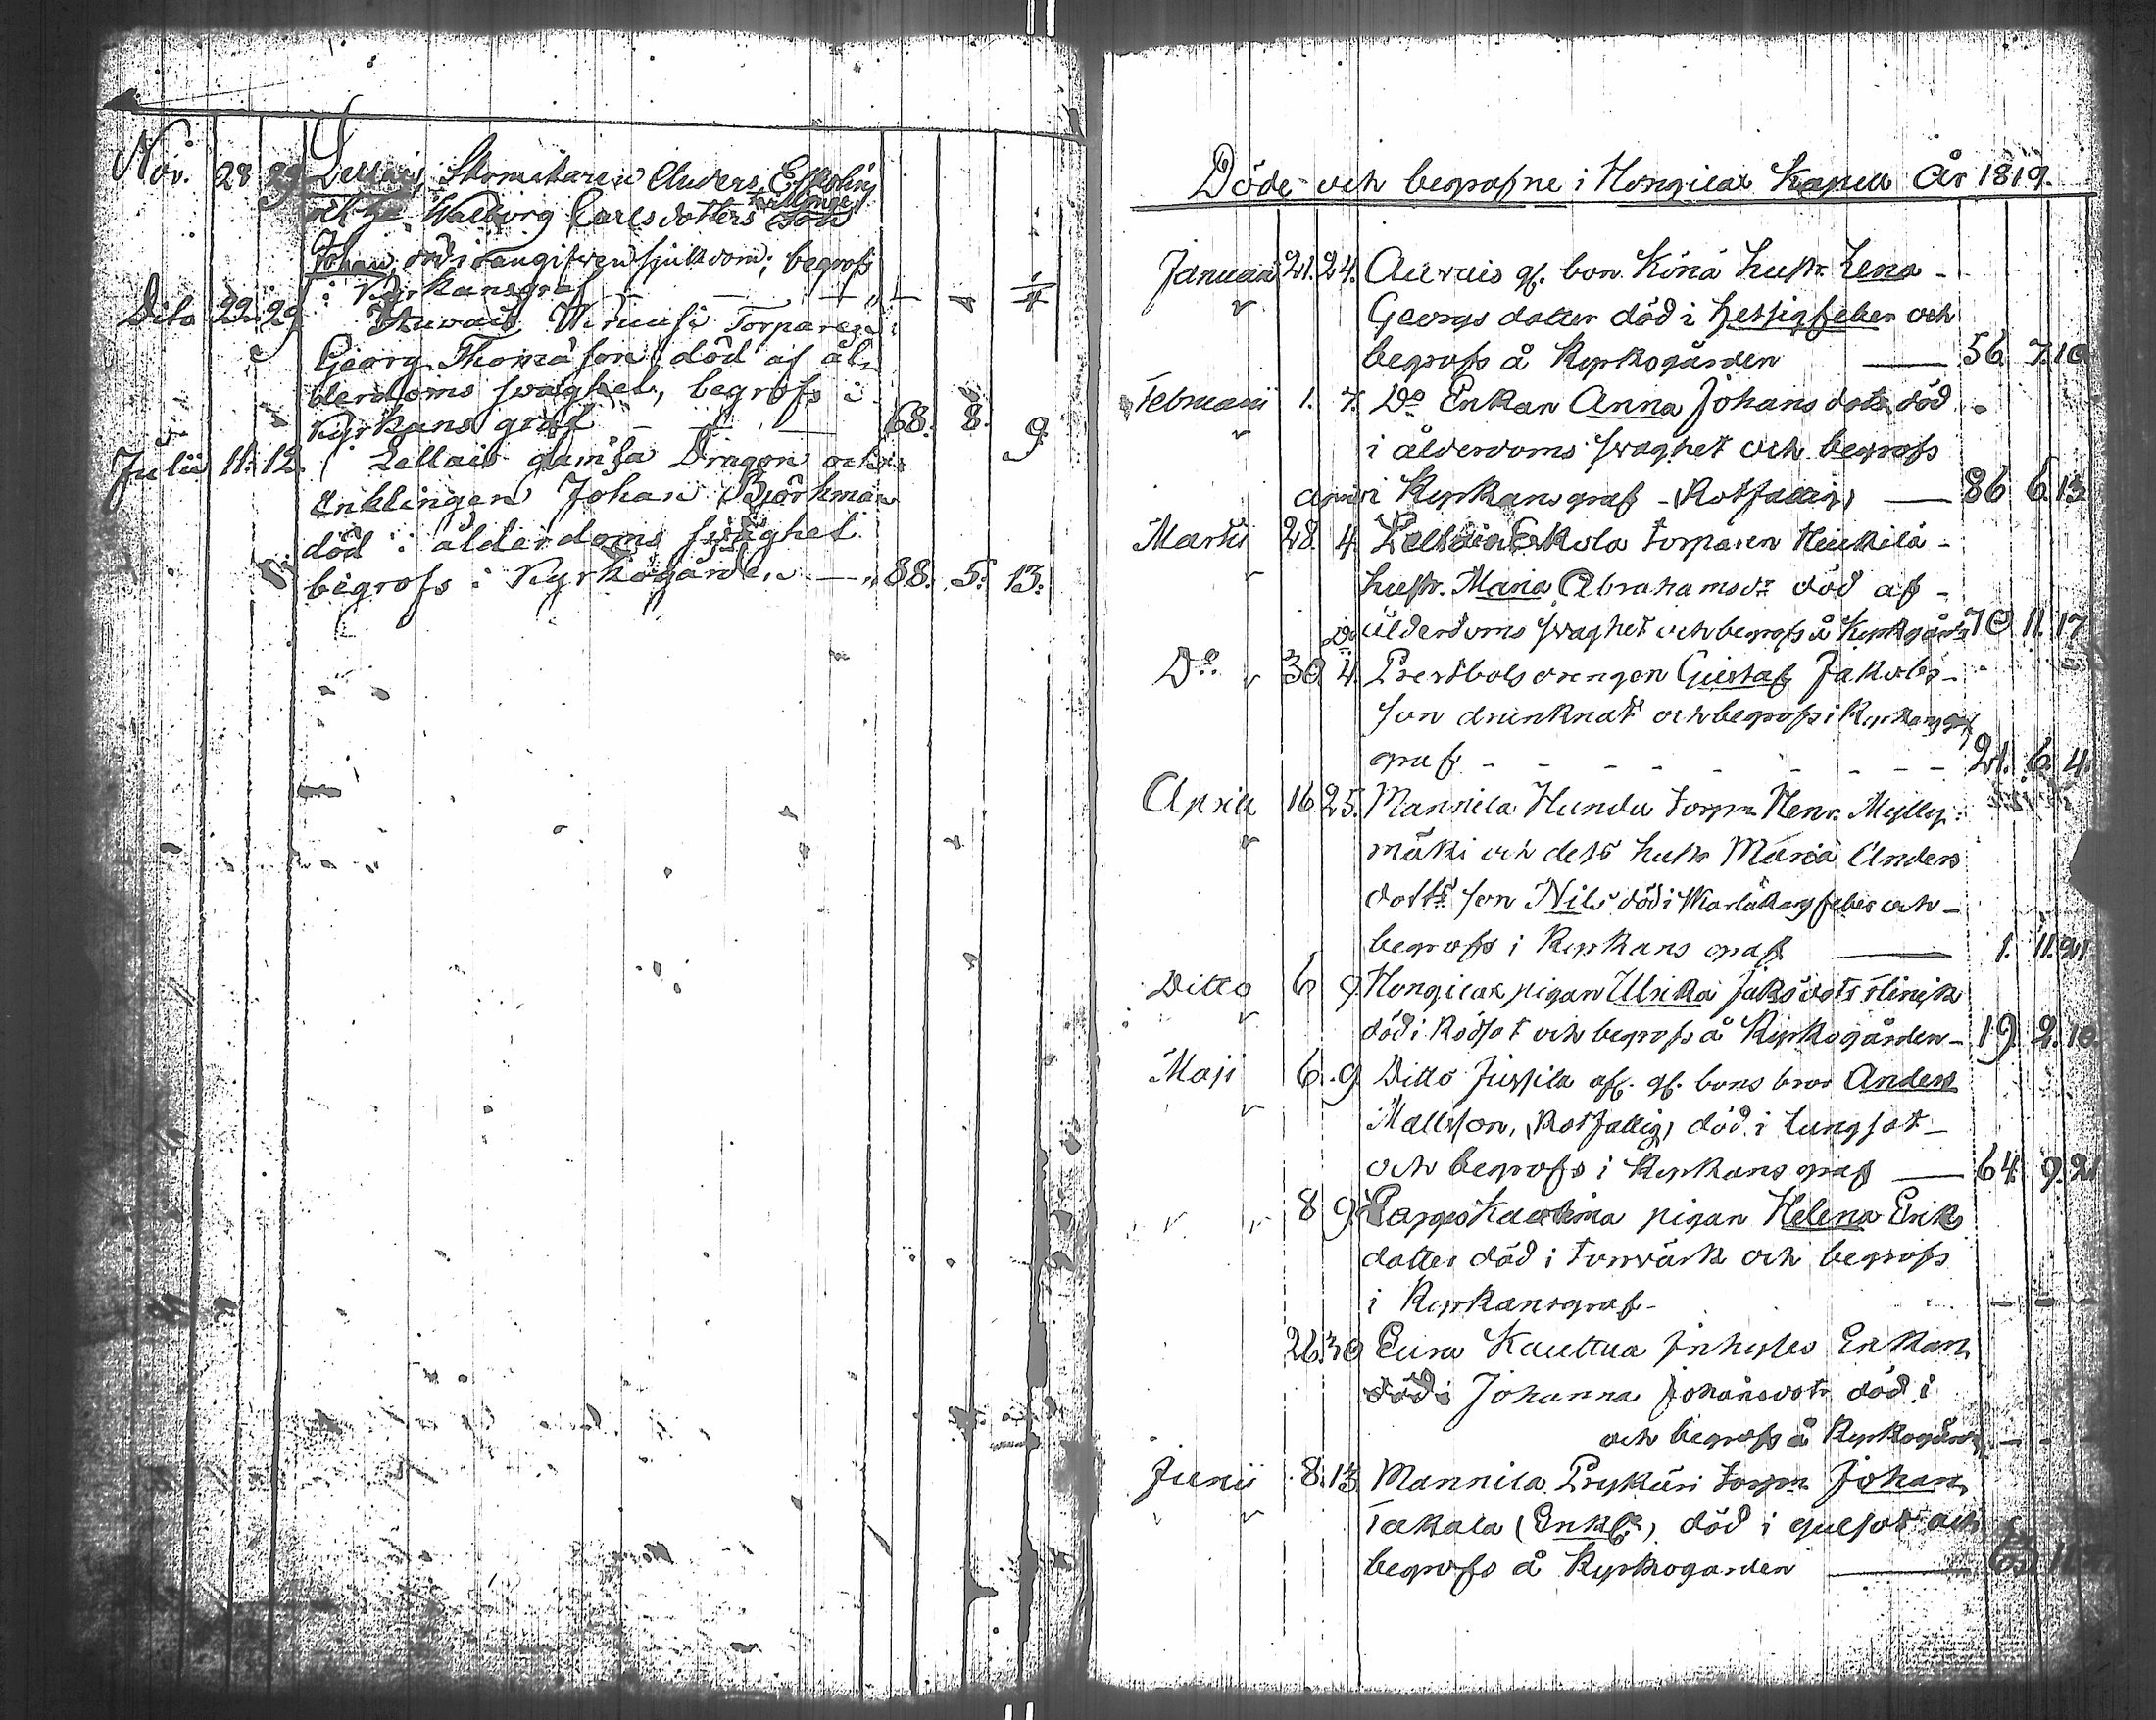 Nov. 28 29 Lellais, Skomakaren Anders Eskolin
och h. Walborg Carlsdotters twillinge son
Johan, död i oangifwen sjukdom; begrofs
i Kyrkansgraf — — — — 1/4
Dito 22. 29. Auvais Wiruusi Torparen
Georg Thomason, död af ål-
derdoms swaghet, begrofs i
Kyrkans graf — — — 68. 8. 9
Julii 11. 12. Lellais gamla Dragon och
Enklingen Johan Björkman
död i ålderdoms swaghet
begrofs i Kyrkogården — 88. 5. 13.
Döde och begrafne i Hongilax Kapell År 1819.
Januarii 21. 24. Auvais gl. bon. Kina hustr. Lena
Georgs dotter död i hettigfeber och
begrofs å Kyrkogården — 56 7. 10
Februarii 1. 7. Do Enkan Anna Johans dotr död
i ålderdoms swaghet och begrofs
i Kyrkans graf (Rotfattig) — 86 6. 13
Martii 28. 4. Lellais Eskola torparen Heikkilä
hustr. Maria Abrahamsdr död af
ålderdoms swaghet och begrofs å Kyrkgårdn 70 11. 17
Do 30 4. Prestbols drengen Gustaf Jakobs
son drunknat och begrofs i Kyrkans
graf - - - - - - - - 21. 6. 4.
Aprill 16 25. Mannila Hundu torpn Henr. Mylly
mäki och dets hustr Maria Anders
dottrs son Nils död i Maslåkangs feber och
begrofs i Kyrkans graf — 1. 11. 21
Ditto 6 9 Hongilax pigan Ulrika Jaks dotr
död i Rödsot och begrofs å Kyrkogården 19. 2. 10.
Maji 6. 9 Ditto Jussila af. gl. bons bror Anders
Mattsson, (Rotfattig) död i Lungsot
och begrofs i Kyrkans graf — 64. 9. 21
8 9. pigan Helena Eriks
dotter död i Torrvärk och begrofs
i Kyrkansgraf - — — —
26. 30 Eura Kauttua Inhyses Enkan
Johanna Johansdotr död i
och begrofs å Kyrkogårdn — -
Junii 8. 13 Mannila Pyykäri torpn Johan
Takala (Enkl.) död i gulsot och
begrofs å Kyrkogarden — 65 11